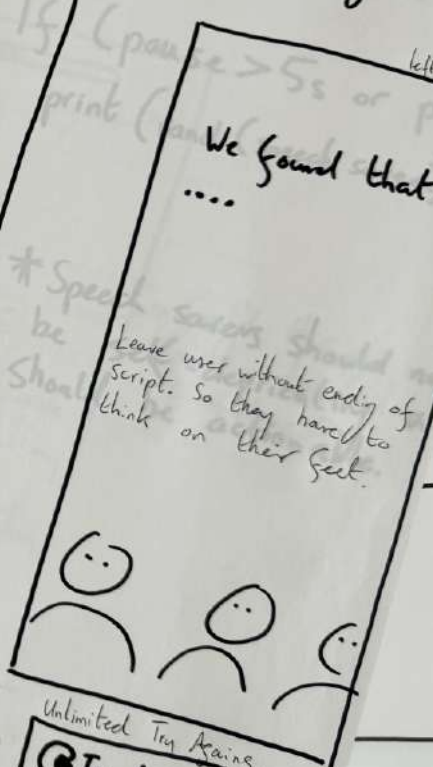 If (pause > 5s or p
print (
left
We found that
....
* Speech savers should
be
should be
Leave user without ending of
script. So they have to
think on their feet.
Unlimited Try Agains